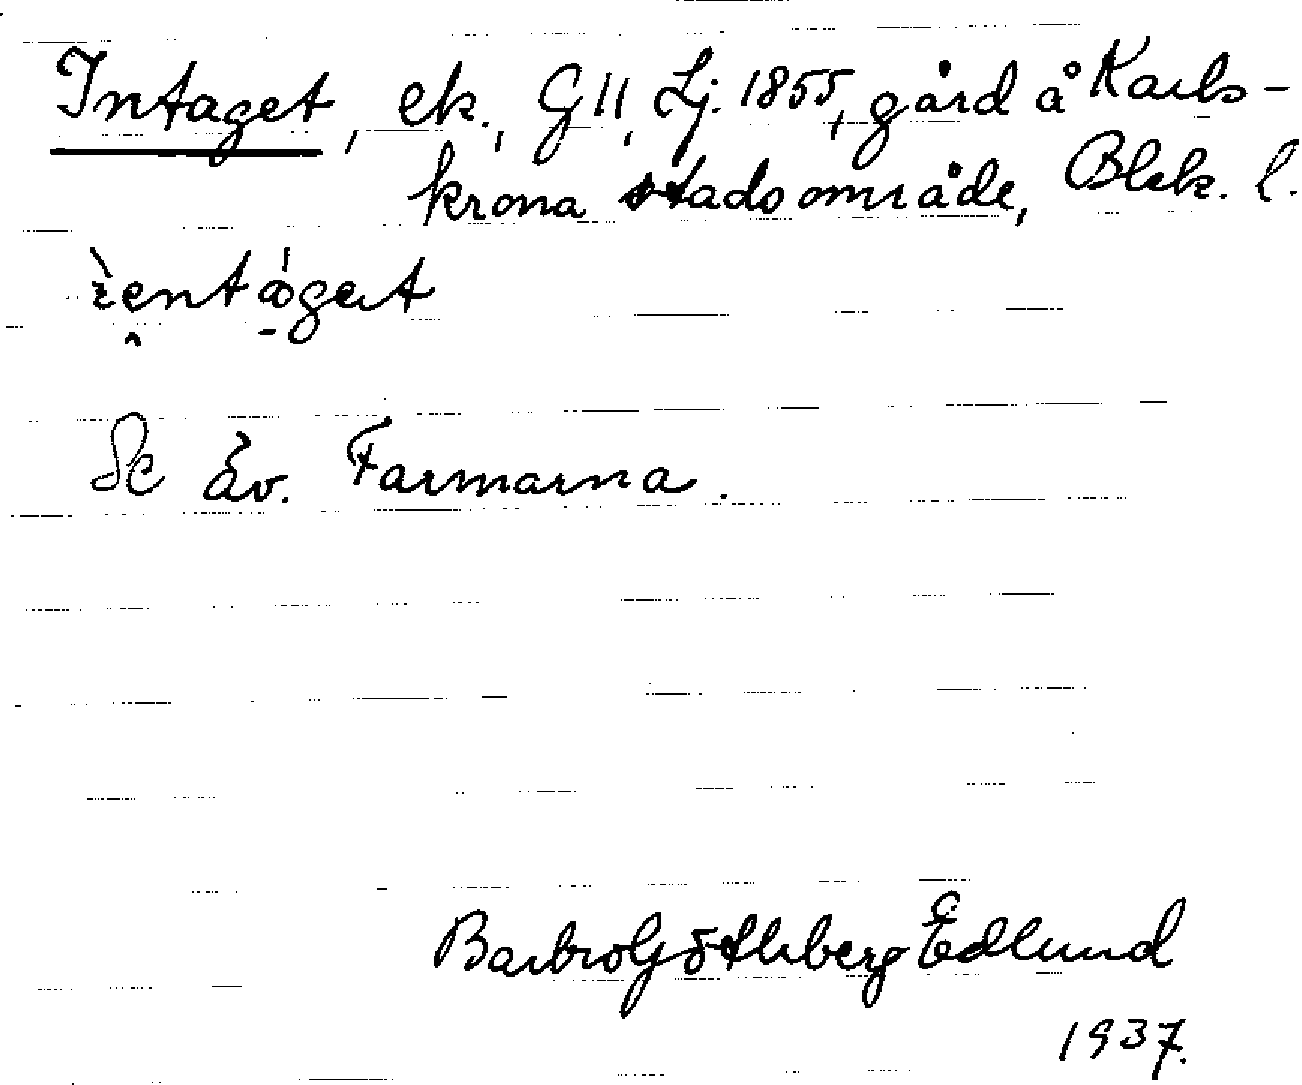 Intaget, ek., G11, Lj. 1855, gård å Karls-
krona stadsområde, Blek. l.
Se äv. Farmarna.
Barbro Göthberg Edlund
1937.